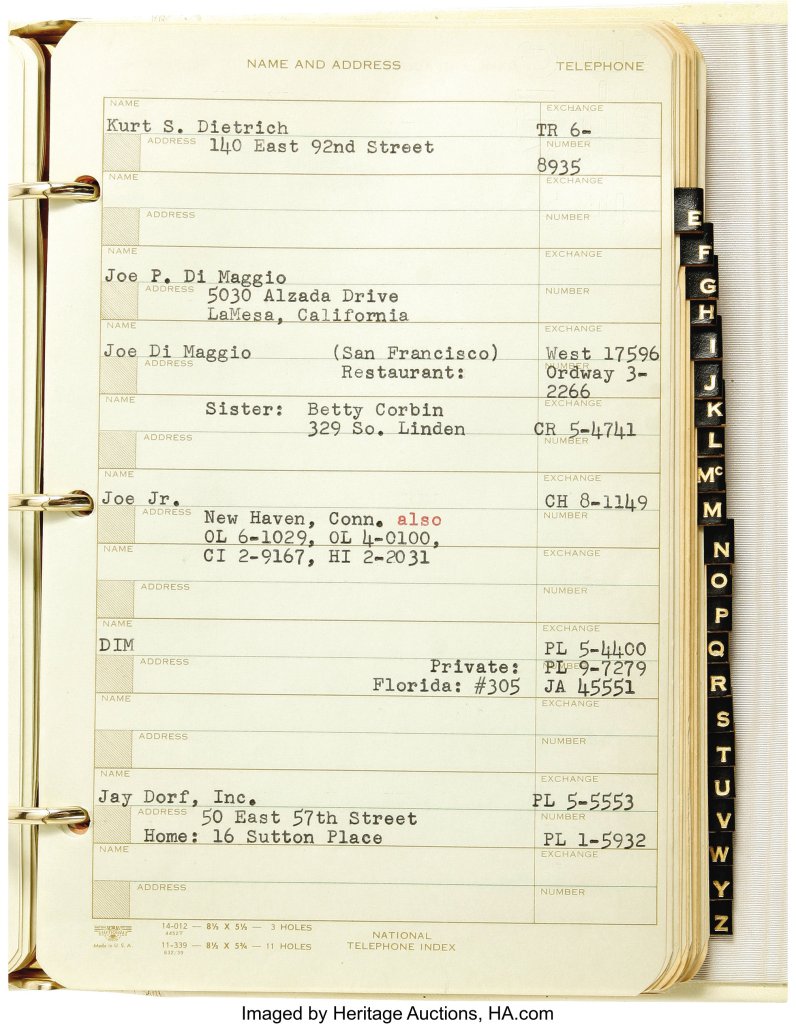 NAME AND ADDRESS TELEPHONE
NAME EXCHANGE
Kurt S. Dietrich TR 6-
ADDRESS 140 East 92nd Street NUMBER
8935
NAME EXCHANGE
ADDRESS NUMBER
NAME EXCHANGE
Joe P. Di Maggio
ADDRESS 5030 Alzada Drive NUMBER
LaMesa, California
NAME EXCHANGE
Joe Di Maggio (San Francisco) West 17596
ADDRESS Restaurant: NUMBER Ordway 3-
2266
NAME EXCHANGE
Sister: Betty Corbin
329 So. Linden CR 5-4741
ADDRESS NUMBER
NAME EXCHANGE
Joe Jr. CH 8-1149
ADDRESS New Haven, Conn. also NUMBER
OL 6-1029, OL 4-0100,
NAME CI 2-9167, HI 2-2031 EXCHANGE
ADDRESS NUMBER
NAME EXCHANGE
DIM PL 5-4400
ADDRESS Private: NUMBER PL 9-7279
Florida: #305 JA 45551
NAME EXCHANGE
ADDRESS NUMBER
NAME EXCHANGE
Jay Dorf, Inc. PL 5-5553
ADDRESS 50 East 57th Street NUMBER
Home: 16 Sutton Place PL 1-5932
NAME EXCHANGE
ADDRESS NUMBER
14-012 — 8½ X 5½ — 3 HOLES
11-339 — 8½ X 5¾ — 11 HOLES
Made in U.S.A.
NATIONAL
TELEPHONE INDEX
E
F
G
H
I
J
K
L
Mc
M
N
O
P
Q
R
S
T
U
V
W
Y
Z
Imaged by Heritage Auctions, HA.com